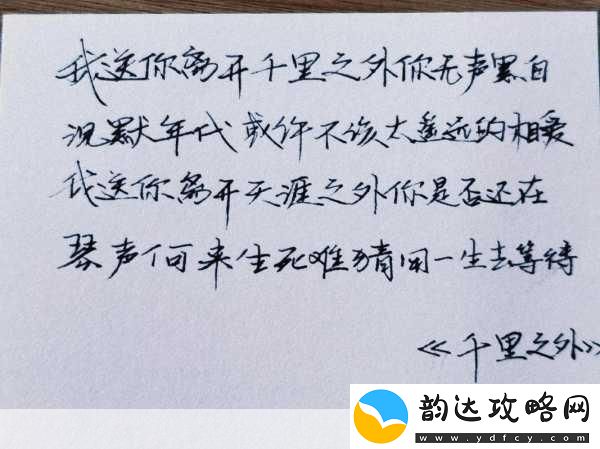 我送你离开千里之外你无声黑白
沉默年代或许不该太遥远的相爱
我送你离开天涯之外你是否还在
琴声何来生死难猜用一生去等待
《千里之外》
韵达攻略网
www.ydfcy.com